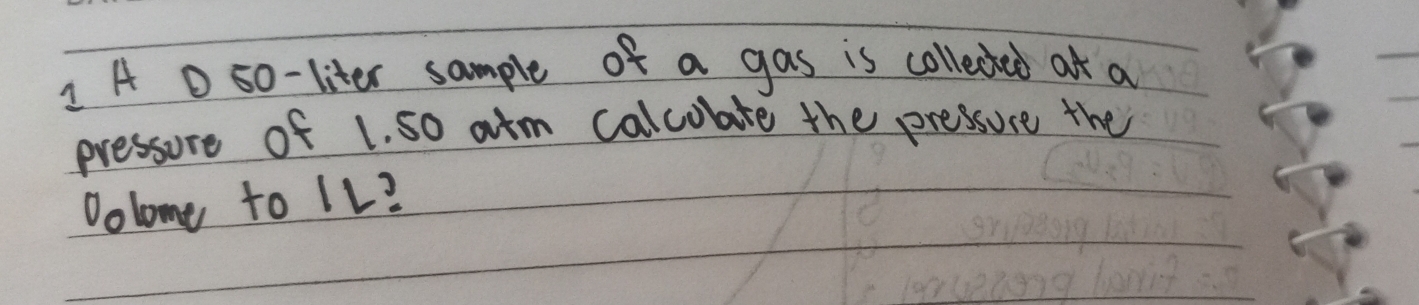 1 A 0 50-liter sample of a gas is collected at a
pressure of 1.50 atm calculate the pressure the
Volome to 1L?